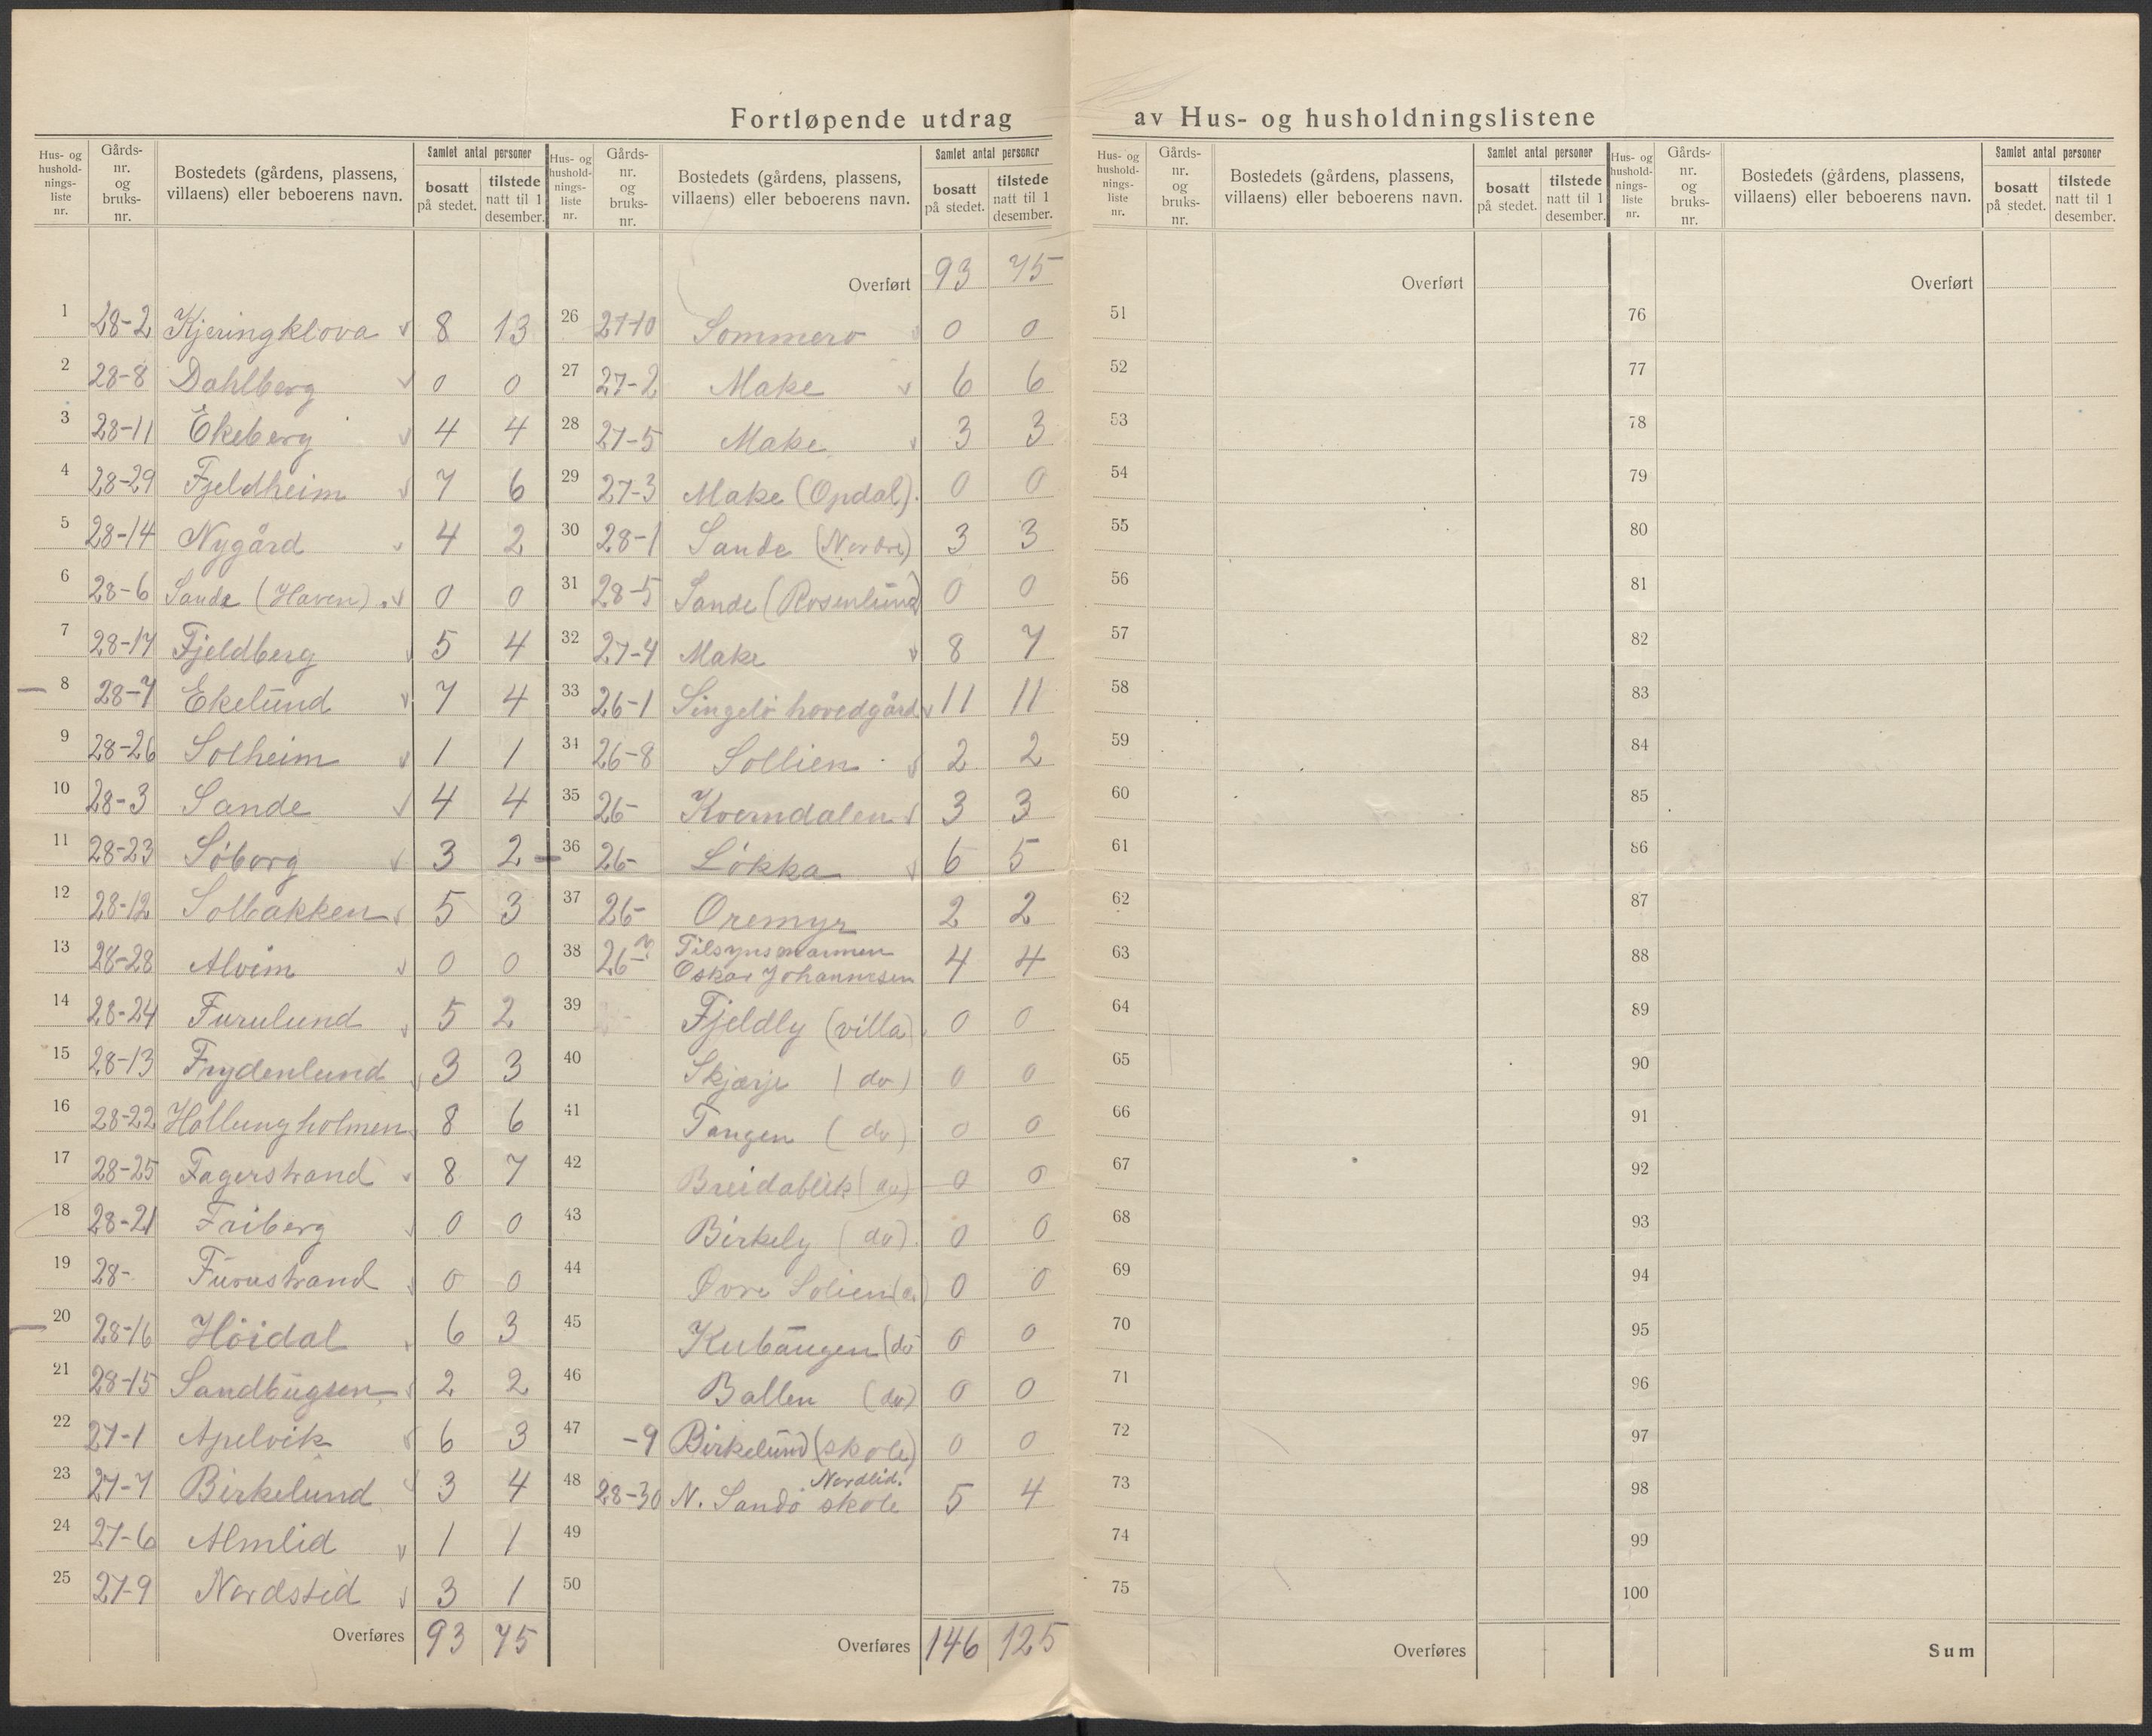 Fortløpende utdrag av Hus- og husholdningslistene
Hus- og husholdnings-liste nr. | Gårds-nr. og bruks-nr. | Bostedets (gårdens, plassens, villaens) eller beboerens navn. | Samlet antal personer | bosatt på stedet. | tilstede natt til 1 desember.
1 28-2 Kjeringklova 8 13
2 28-8 Dahlberg 0 0
3 28-11 Ekeberg 4 4
4 28-29 Fjeldheim 7 6
5 28-14 Nygård 4 2
6 28-6 Sande (Haven) 0 0
7 28-17 Fjeldberg 5 4
8 28-7 Ekelund 7 4
9 28-26 Solheim 1 1
10 28-3 Sande 4 4
11 28-23 Söborg 3 2
12 28-12 Solbakken 5 3
13 28-28 Alvim 0 0
14 28-24 Furulund 5 2
15 28-13 Frydenlund 3 3
16 28-22 Hollungholmen 8 6
17 28-25 Fagerstrand 8 7
18 28-21 Friberg 0 0
19 28- Furustrand 0 0
20 28-16 Höidal 6 3
21 28-15 Sandbugsen 2 2
22 27-1 Apelvik 6 3
23 27-7 Birkelund 3 4
24 27-6 Almlid 1 1
25 27-9 Nordstid 3 1
Overføres 93 75
Hus- og hushold-nings-liste nr. | Gårds-nr. og bruks-nr. | Bostedets (gårdens, plassens, villaens) eller beboerens navn. | Samlet antal personer | bosatt på stedet. | tilstede natt til 1 desember.
Overført 93 75
26 27-10 Sommero 0 0
27 27-2 Make 6 6
28 27-5 Make 3 3
29 27-3 Make (Opdal). 0 0
30 28-1 Sande (Nordre) 3 3
31 28-5 Sande (Rosenlund) 0 0
32 27-4 Make 8 7
33 26-1 Singelö hovedgård 11 11
34 26-8 Sollien 2 2
35 26- Kverndalen 3 3
36 26- Lökka 6 5
37 26- Oremyr 2 2
38 26-? Tilsynsmannen
Oskar Johannesen 4 4
39 Fjeldly (villa) 0 0
40 Skjærje (do) 0 0
41 Tangen (do) 0 0
42 Breidablik (do) 0 0
43 Birkely (do). 0 0
44 Øvre Solien (d.) 0 0
45 Kubaugen (do 0 0
46 Ballen (do) 0 0
47 -9 Birkelund (skole) 0 0
48 28-30 N. Sandö skole Nordlid. 5 4
49
50
Overføres 146 125
Hus- og hushold-nings-liste nr. | Gårds-nr. og bruks-nr. | Bostedets (gårdens, plassens, villaens) eller beboerens navn. | Samlet antal personer | bosatt på stedet. | tilstede natt til 1 desember.
Overført
51
52
53
54
55
56
57
58
59
60
61
62
63
64
65
66
67
68
69
70
71
72
73
74
75
Overføres
Hus- og hushold-nings-liste nr. | Gårds-nr. og bruks-nr. | Bostedets (gårdens, plassens, villaens) eller beboerens navn. | Samlet antal personer | bosatt på stedet. | tilstede natt til 1 desember.
Overført
76
77
78
79
80
81
82
83
84
85
86
87
88
89
90
91
92
93
94
95
96
97
98
99
100
Sum